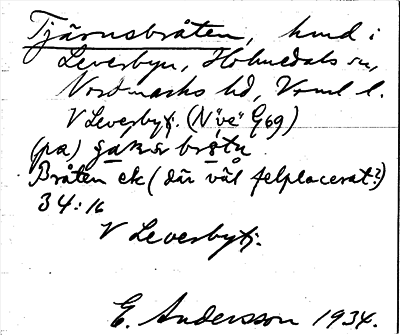 Tjärnsbråten, hmd i
Leverbyn, Holmedals sn,
Nordmarks hd, Vrml l.
V Leverbytj. (N"ve" G69)
(pa)
Bråten ek (där väl felplacerat?)
34:16
V Leverbytj.
E. Andersson 1934.